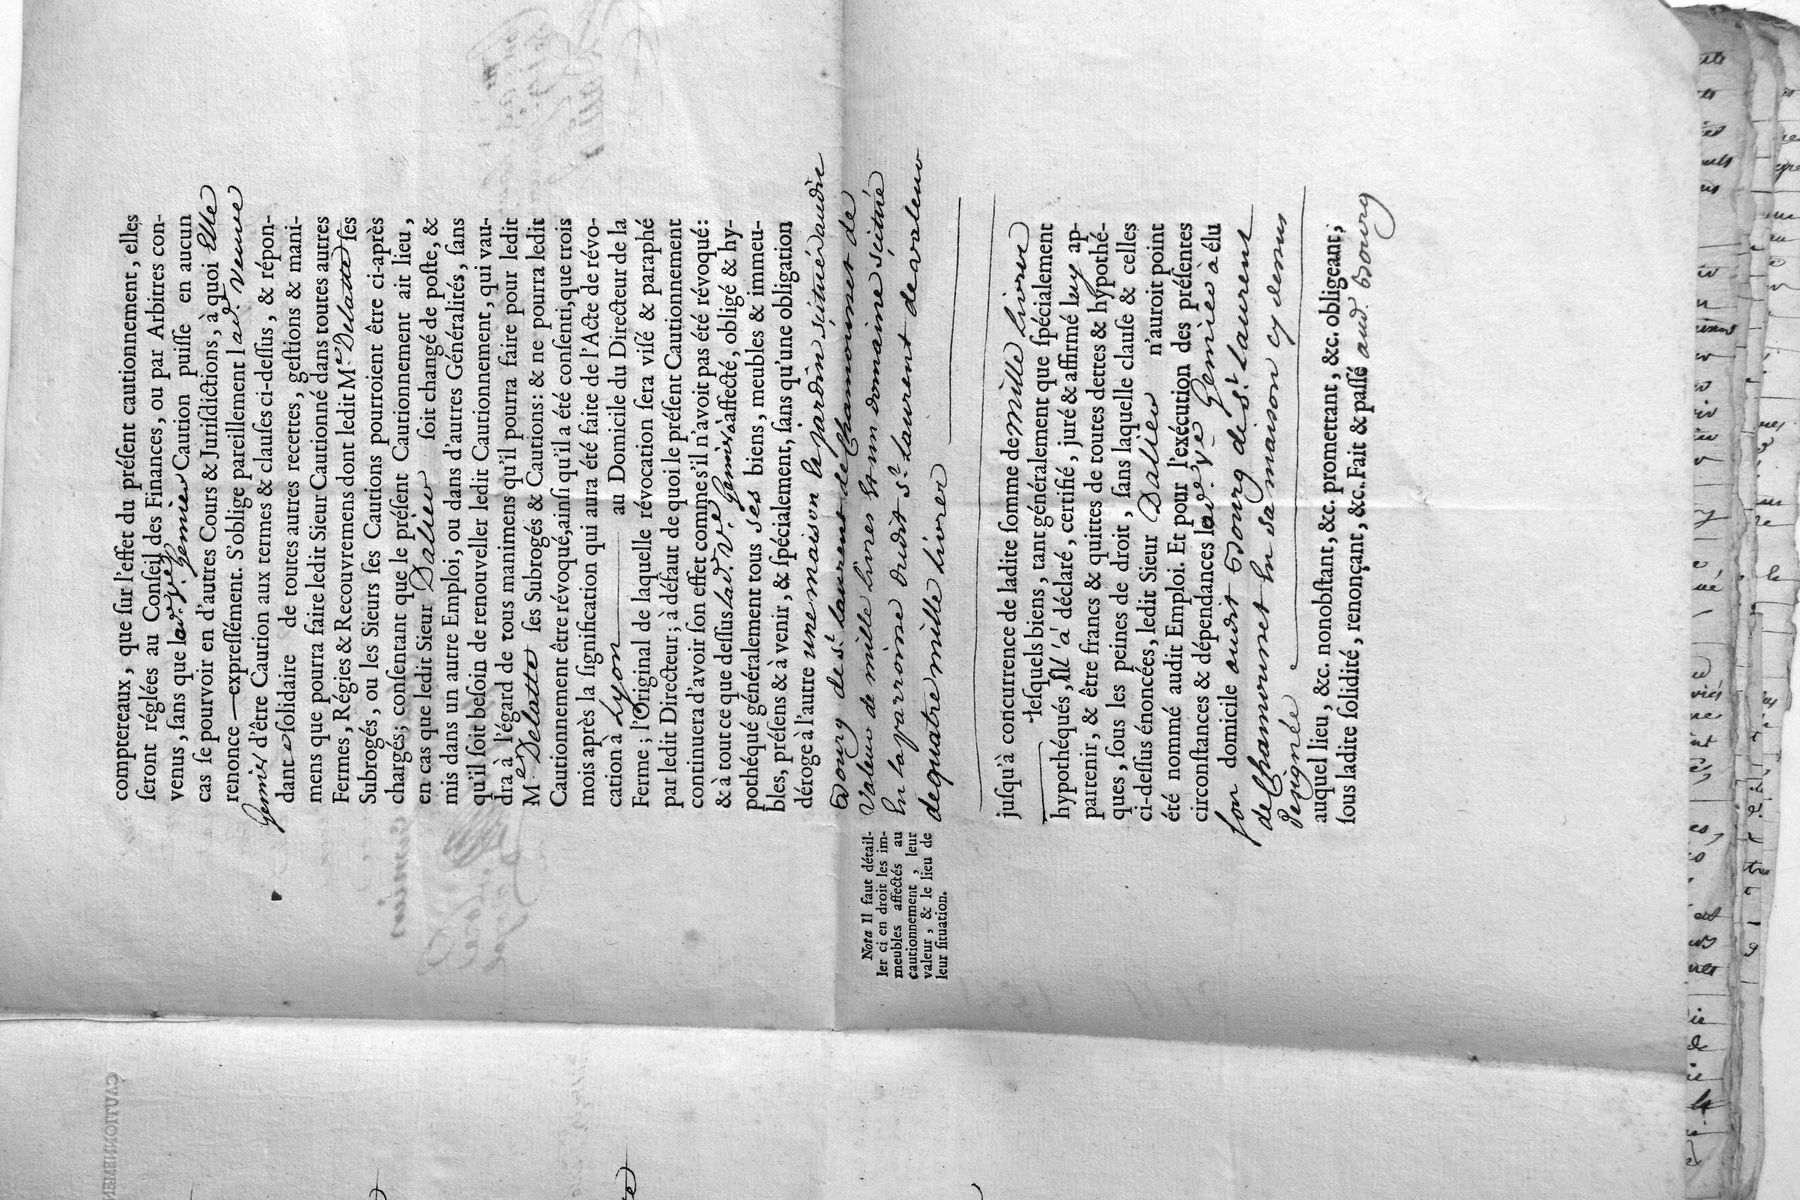 comptereaux, que ſur l'effet du préſent cautionnement, elles
ſeront réglées au Conſeil des Finances, ou par Arbitres con-
venus, ſans que lad. ve. Genier Caution puiſſe en aucun
cas ſe pourvoir en d'autres Cours & Juriſdictions, à quoi Elle
renonce expreſſément. S'oblige pareillement lad. Veuve
Genier d'être Caution aux termes & clauſes ci-deſſus, & répon-
dante ſolidaire de toutes autres recettes, geſtions & mani-
mens que pourra faire ledit Sieur Cautionné dans toutes autres
Fermes, Régies & Recouvremens dont ledit Me. Delatte ſes
Subrogés, ou les Sieurs ſes Cautions pourroient être ci-après
chargés; conſentant que le préſent Cautionnement ait lieu,
en cas que ledit Sieur Dalieu ſoit changé de poſte, &
mis dans un autre Emploi, ou dans d'autres Généralités, ſans
qu'il ſoit beſoin de renouveller ledit Cautionnement, qui vau-
dra à l'égard de tous manimens qu'il pourra faire pour ledit
Me. Delatte ſes Subrogés & Cautions: & ne pourra ledit
Cautionnement être révoqué, ainſi qu'il a été conſenti, que trois
mois après la ſignification qui aura été faite de l'Acte de révo-
cation à Lyon au Domicile du Directeur de la
Ferme; l'Original de laquelle révocation ſera viſé & paraphé
par ledit Directeur; à défaut de quoi le préſent Cautionnement
continuera d'avoir ſon effet comme s'il n'avoit pas été révoqué:
& à tout ce que deſſus lad. Ve. Genier a affecté, obligé & hy-
pothéqué généralement tous ses biens, meubles & immeu-
bles, préſens & à venir, & ſpécialement, ſans qu'une obligation
déroge à l'autre une maison le jardin situé audit
Bourg de St. Laurent de Chamousset de
Valeur de mille livres Et un domaine situé
En la parroisse dudit St. Laurent de valeur
de quatre mille Livres
Nota Il faut détail-
ler ci en droit les im-
meubles affectés au
cautionnement, leur
valeur, & le lieu de
leur ſituation.
juſqu'à concurrence de ladite ſomme de mille livres
leſquels biens, tant généralement que ſpécialement
hypothéqués, Ell' a déclaré, certifié, juré & affirmé luy ap-
partenir, & être francs & quittes de toutes dettes & hypothé-
ques, ſous les peines de droit, ſans laquelle clauſe & celles
ci-deſſus énoncées, ledit Sieur Dalieu n'auroit point
été nommé audit Emploi. Et pour l'exécution des préſentes
circonſtances & dépendances lad. ve. Genier a élu
ſon domicile audit Bourg de St. Laurent
de Chamousset En sa maison cy dessus
designée
auquel lieu, &c. nonobſtant, &c. promettant, &c. obligeant,
ſous ladite ſolidité, renonçant, &c. Fait & paſſé aud. Bourg
CAUTIONNEMEN